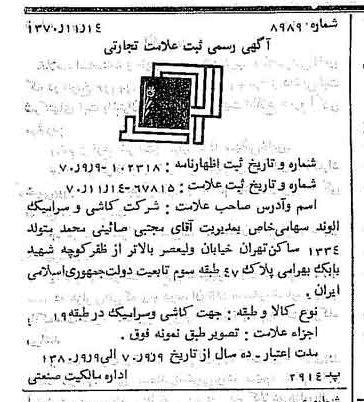 شماره: ۸۹۸۹ ۱۳۷۰ر۱۱ر۱۴
آگهی رسمی ثبت علامت تجارتی
شماره و تاریخ ثبت اظهارنامه : ۱۰۲۳۱۸-۷۰ر۹ر۹
شماره و تاریخ ثبت علامت : ۶۷۸۱۵-۷۰ر۱۱ر۱۴
اسم وآدرس صاحب علامت : شرکت کاشی و سرامیک
الوند سهامی خاص بمدیریت آقای مجتبی صائینی محمد متولد
۱۳۳۴ ساکن تهران خیابان ولیعصر بالاتر از ظفرکوچه شهید
بابک بهرامی پلاک ۴۷ طبقه سوم تابعیت دولت جمهوری اسلامی
ایران .
نوع کالا و طبقه : جهت کاشی وسرامیک در طبقه ۱۹
اجزاء علامت : تصویر طبق نمونه فوق .
مدت اعتبار - ده سال از تاریخ ۷۰ر۹ر۹ الی ۱۳۸۰ر۹ر۹
پد ۲۹۱۴ اداره مالکیت صنعتی